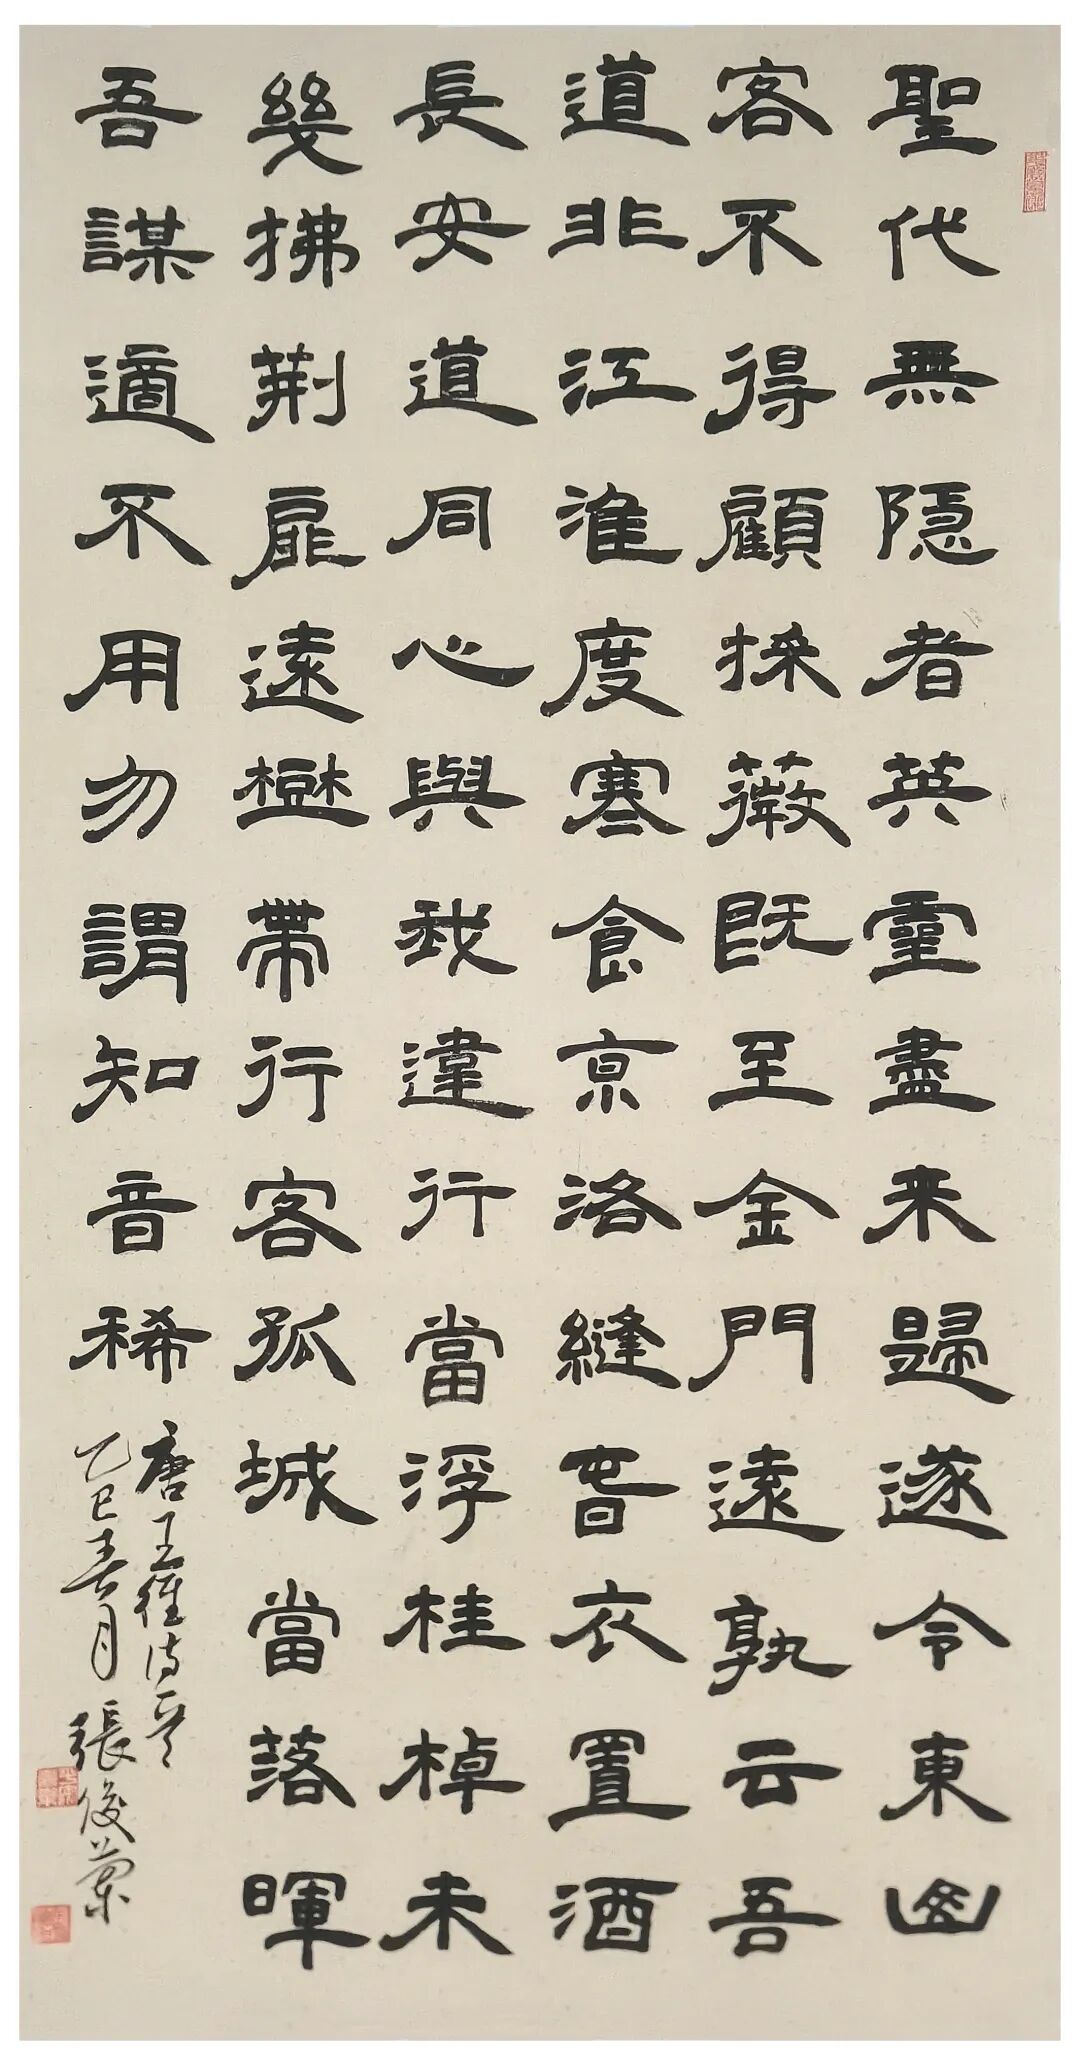 聖代無隱者英靈盡来歸遂令東山
客不得顧採薇既至金門遠孰云吾
道非江淮度寒食京洛縫春衣置酒
長安道同心與我違行當浮桂棹未
幾拂荆扉遠樹帶行客孤城當落暉
吾謀適不用勿謂知音稀
唐王維詩一首
乙巳春月張俊蘭